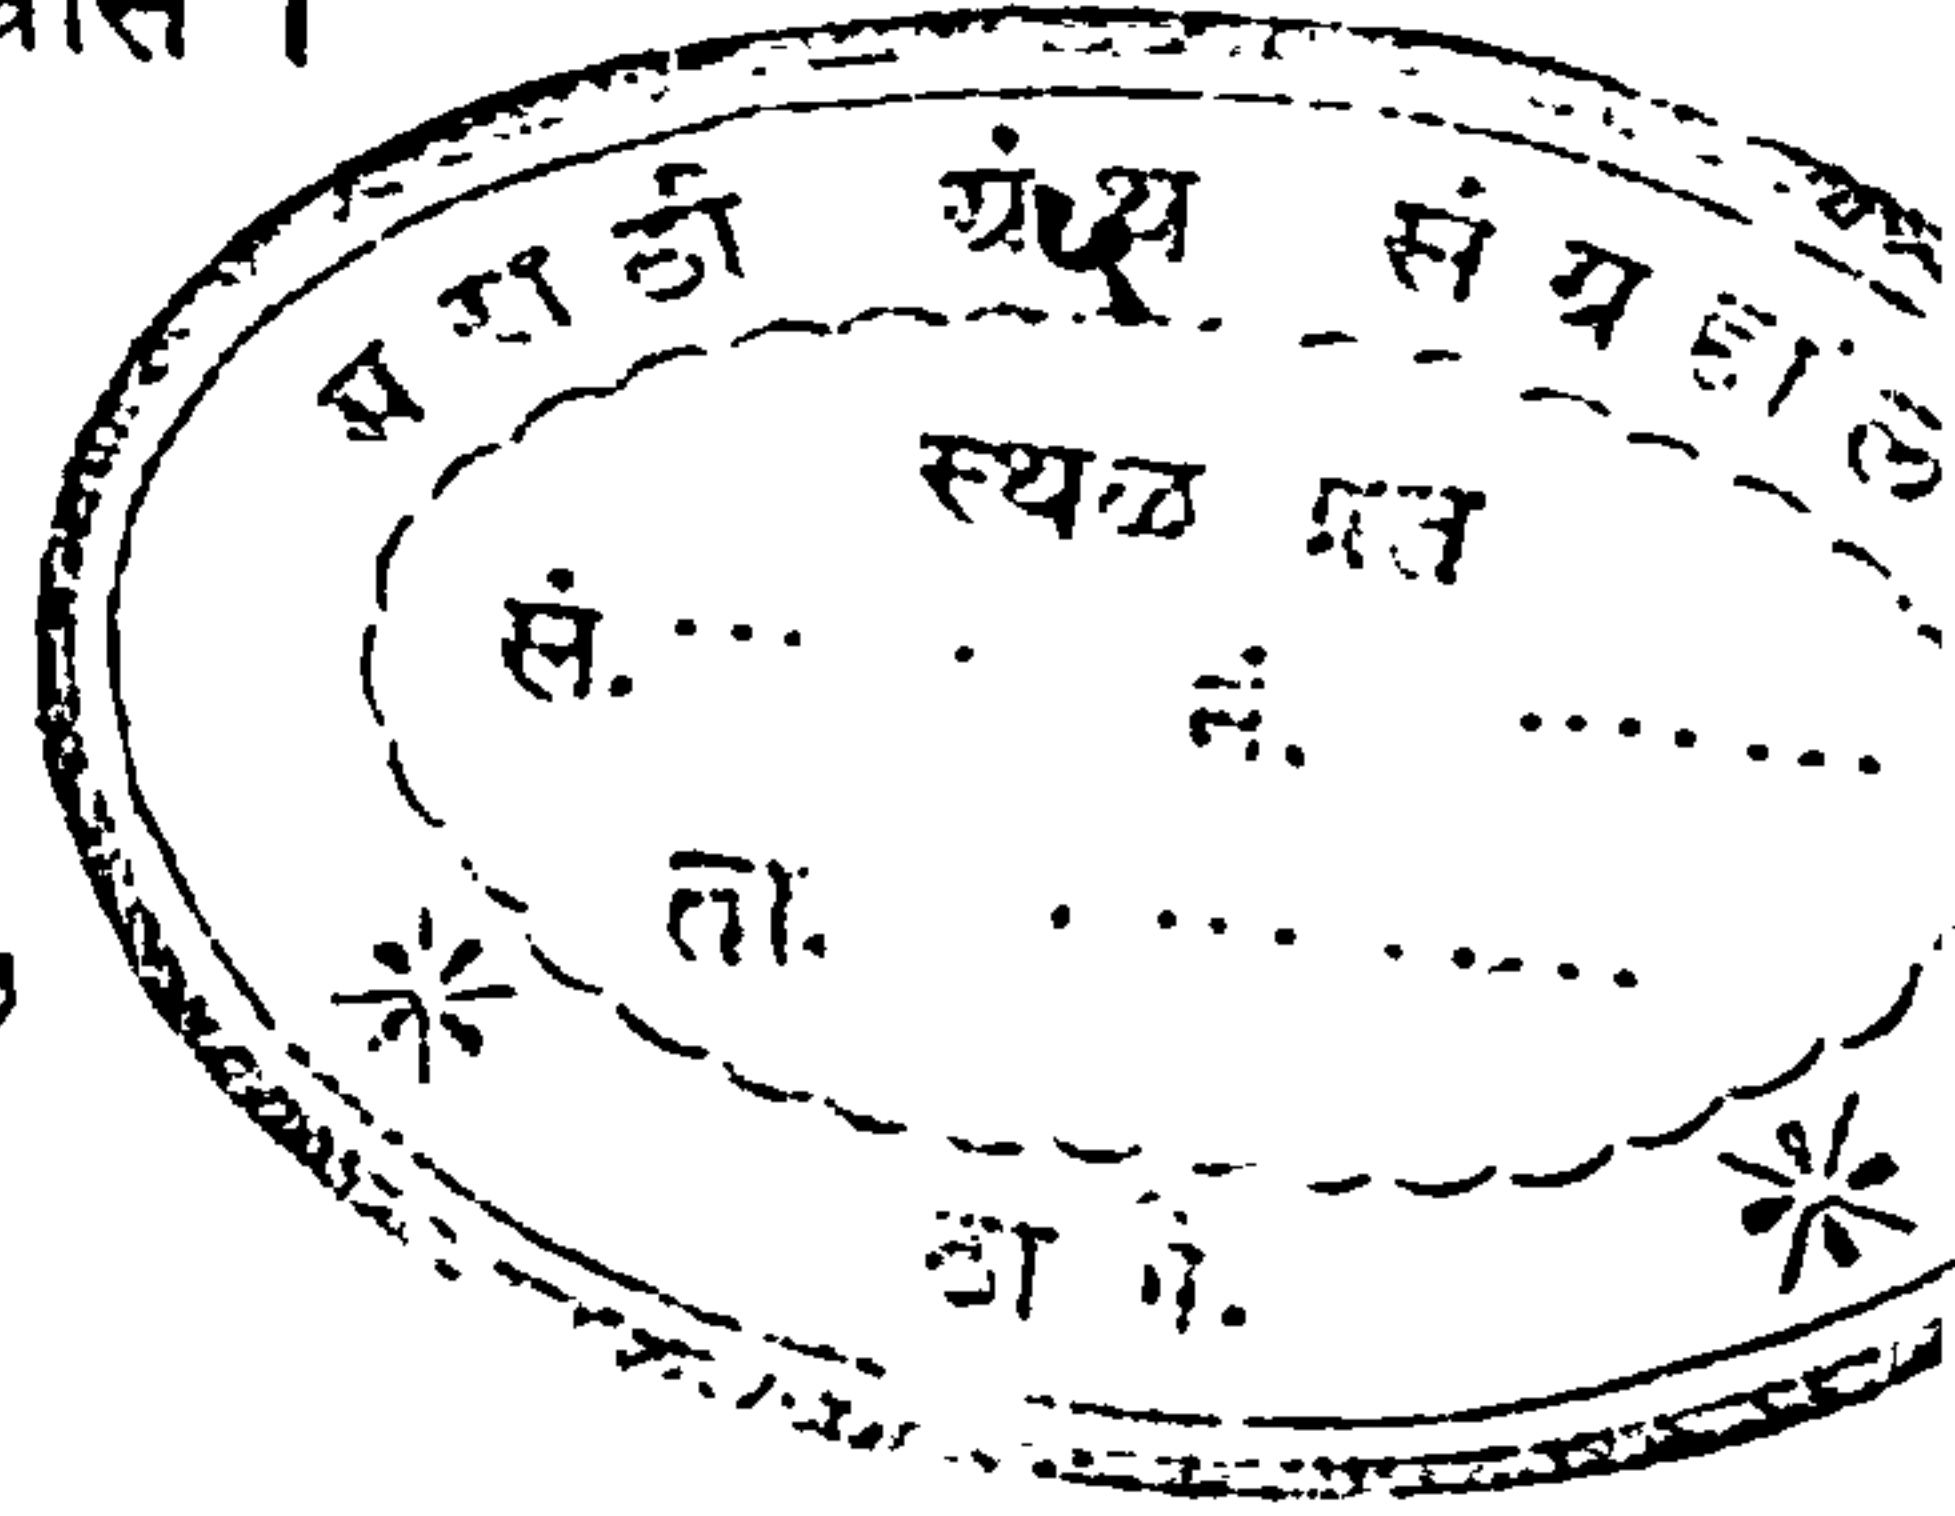 मराठी ग्रंथ संग्रहाल
स्थळ प्रत
सं. ... . नं. .......
ता. .........
ठाणें.